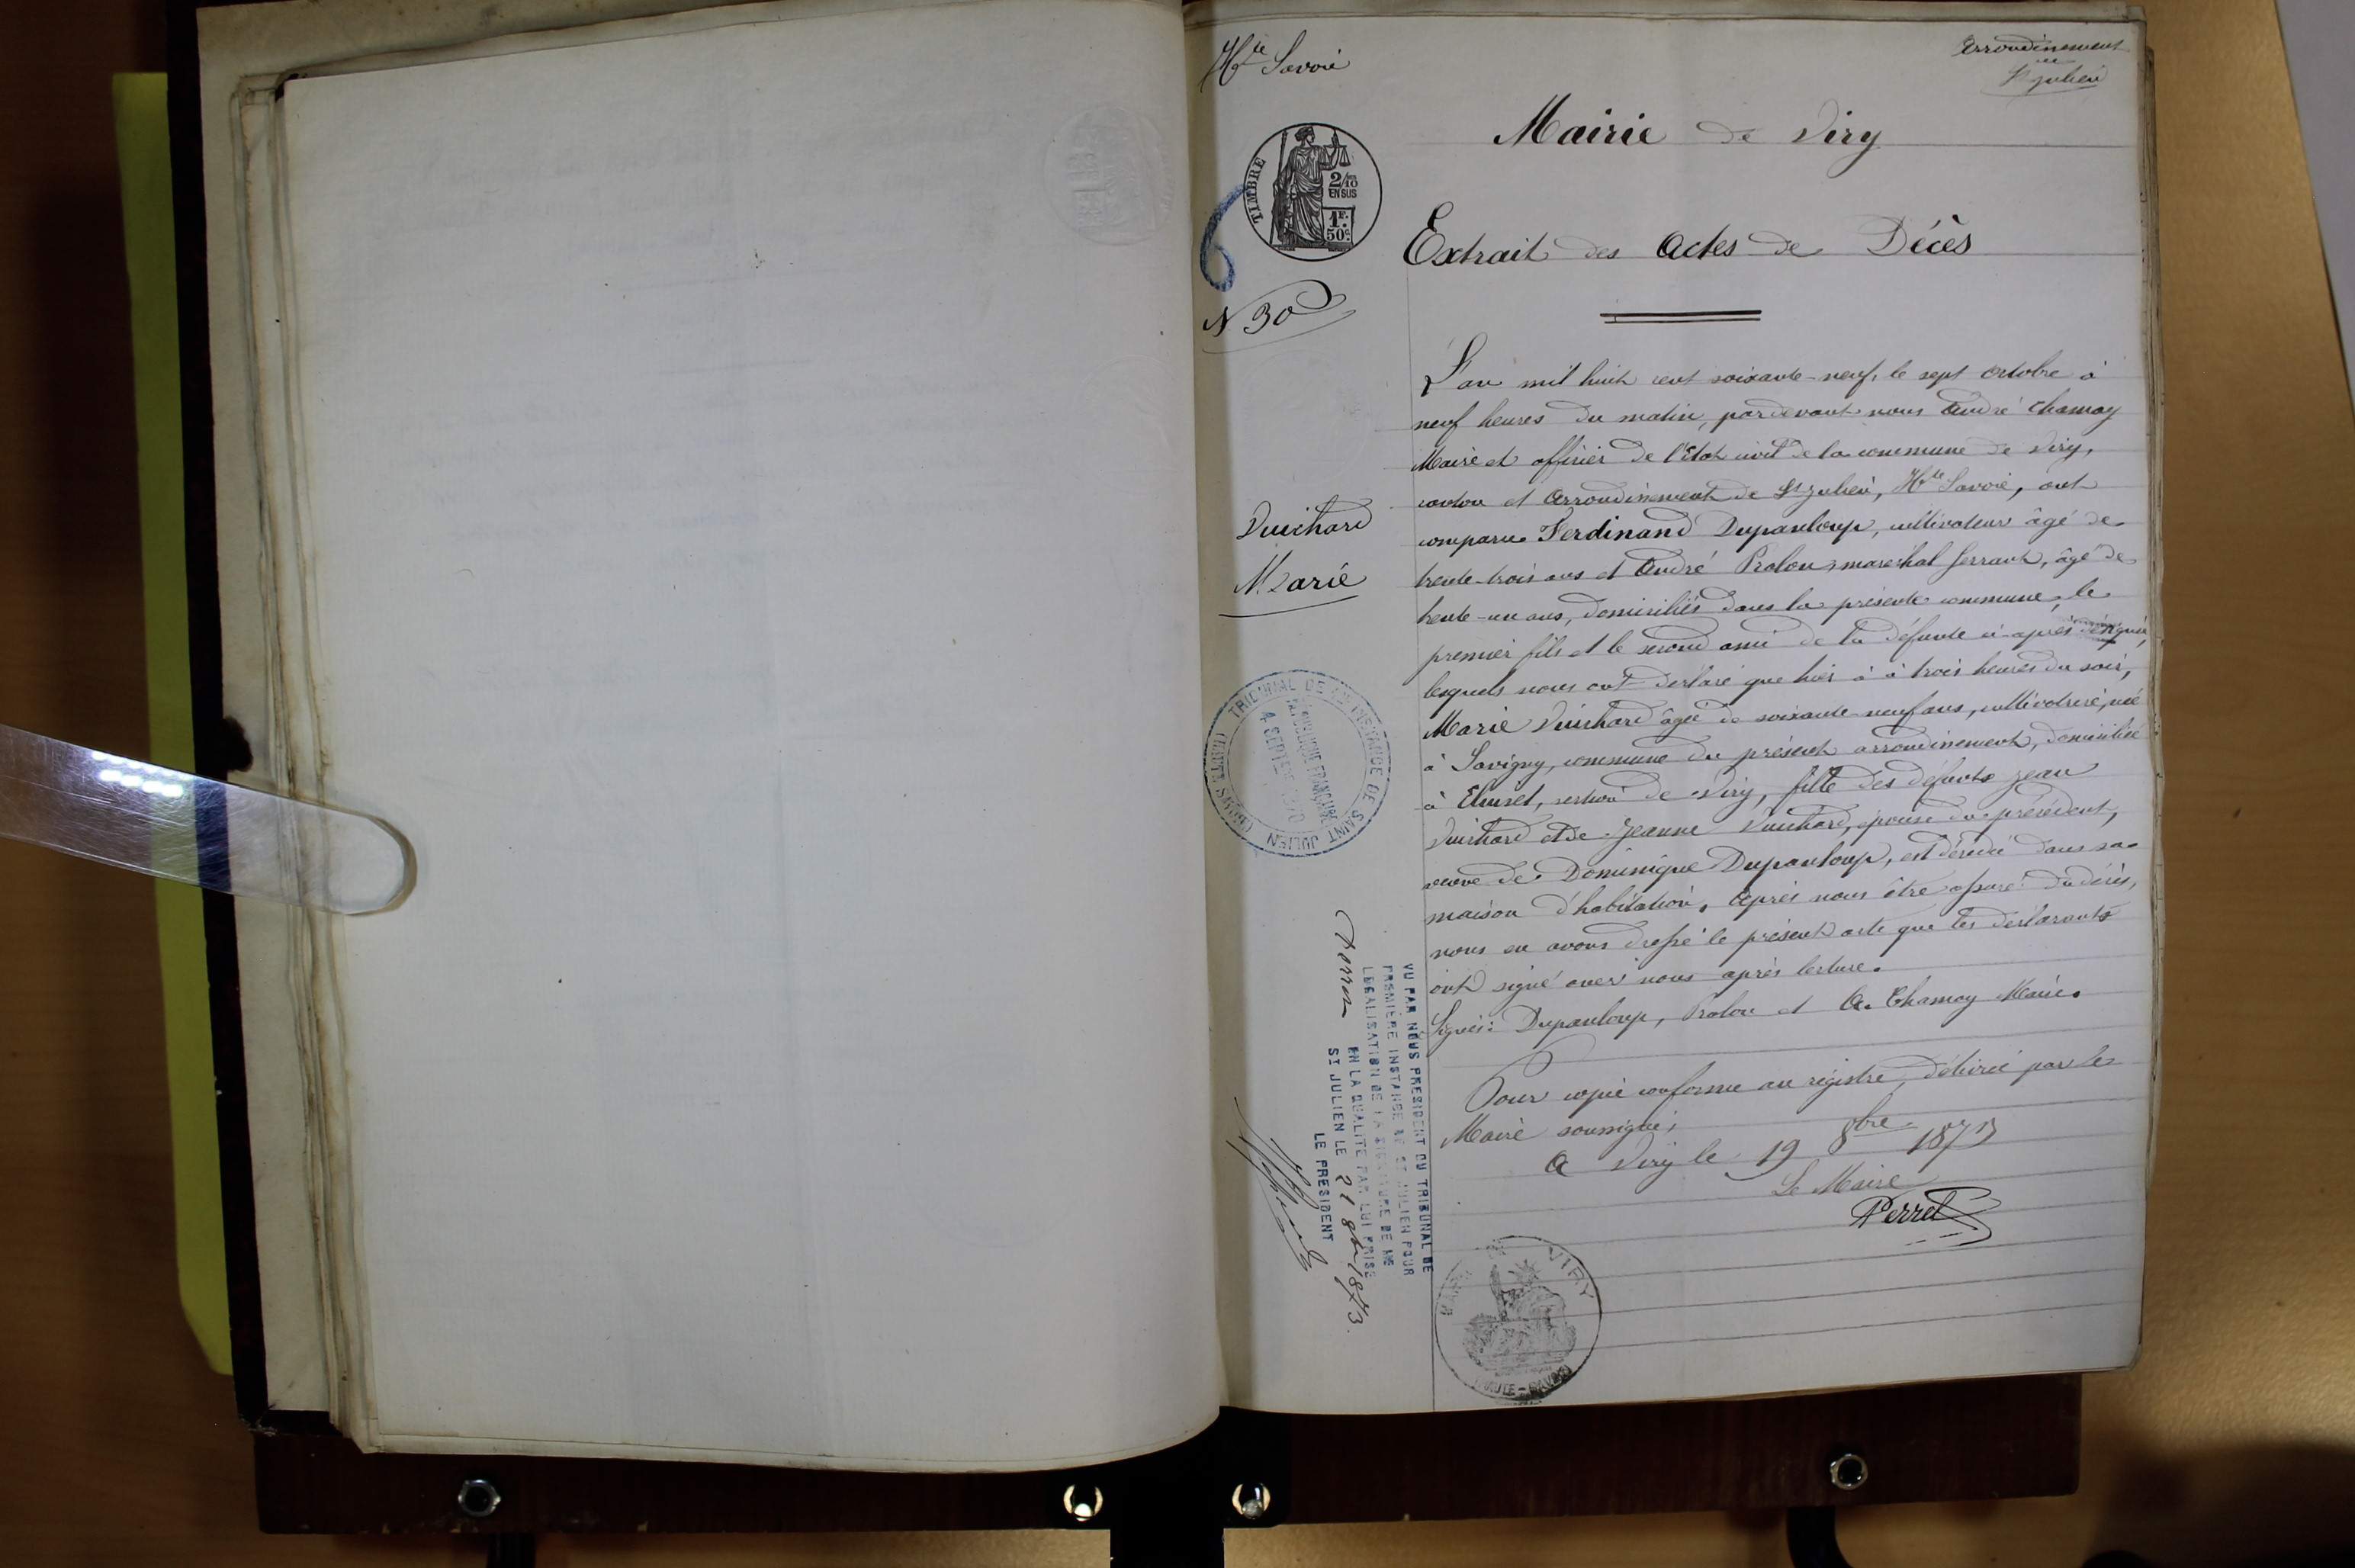 Hte Savoie
Arrondissement
de
St Julien
Mairie de Viry
TIMBRE
2/10
EN SUS
1F.
50c.
6
Extrait des Actes de Décès
N 30
Vuichard
Marie
L'an mil huit cent soixante-neuf, le sept octobre à
neuf heures du matin, pardevant nous André Chamay
Maire et officier de l'Etat civil de la commune de Viry,
canton et Arrondissement de St Julien, Hte Savoie, ont
comparu Ferdinand Dupanloup, cultivateur âgé de
trente-trois ans et André Prolon, marechal ferrant, âgé de
trente-un ans, domiciliés dans la présente commune, le
premier fils et le second ami de la défunte ci-après
lesquels nous ont déclaré que hier à à trois heures du soir,
Marie Vuichard âgée de soixante-neuf ans, cultivatrice, née
à Savigny, commune du présent arrondissement, domiciliée
à Eluiset, section de Viry, fille des défunts Jean
Vuichard et de Jeanne Vuichard, épouse du précédent,
veuve de Dominique Dupanloup, est décédée dans sa
maison d'habitation. Après nous être assuré du décès,
nous en avons dressé le présent acte que les déclarants
ont signé avec nous après lecture.
Signés: Dupanloup, Prolon et A. Chamay Maire.
Pour copie conforme au régistre, délivrée par le
Maire soussigné,
A Viry le 19 8bre 1873
Le Maire
Perret
TRIBUNAL DE 1RE INSTANCE DE SAINT JULIEN (HAUTE SAVOIE)
RÉPUBLIQUE FRANÇAISE
4 SEPTEMBRE 1870
VU PAR NOUS PRESIDENT DU TRIBUNAL DE
PREMIÈRE INSTANCE DE ST JULIEN POUR
LEGALISATION DE LA SIGNATURE DE MR
Perret EN LA QUALITE PAR LUI PRISE
ST JULIEN LE 21 8bre 1873.
LE PRESIDENT
MAIRIE VIRY
HAUTE-SAVOIE